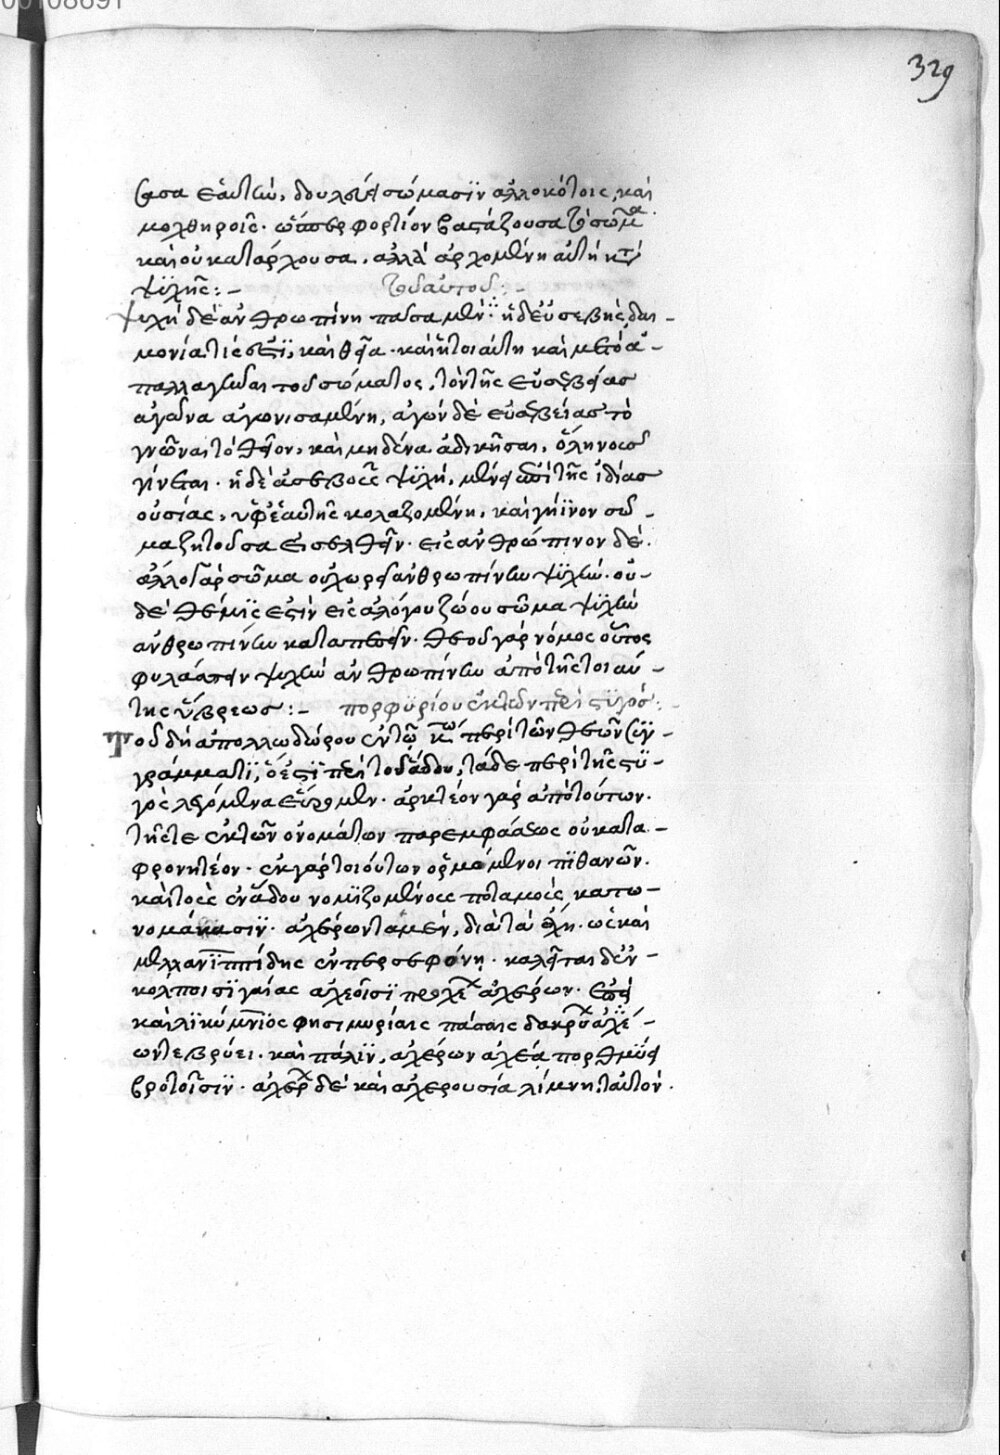 329
σασα ἑαυτὴν, δουλεύει σώμασϊν ἀλλοκότοις καὶ
μοχθηροῖς· ὥσπερ φορτίον βαστάζουσα τὸ σῶμα·
καὶ οὐκ ἄρχουσα, ἀλλὰ ἀρχομένη αὕτη κακία
ψϋχῆς :-       τοῦ αὐτοῦ :-
ψυχὴ δὲ ἀνθρωπίνη πᾶσα μὲν οὔ· ἡ δὲ εὐσεβὴς δαι-
μονία τίς ἐστϊ, καὶ θεία· καὶ ἡ τοιαύτη καὶ μετὰ τὸ ἀ-
παλλαγῆναι τοῦ σώματος, τὸν τῆς εὐσεβείας
ἀγῶνα ἀγωνισαμένη, ἀγὼν δὲ εὐσεβείας τὸ
γνῶναι τὸ θεῖον, καὶ μηδένα ἀδικῆσαι, ὅλη νοῦς
γίνεται· ἡ δὲ ἀσεβοῦς ψϋχὴ, μένει ἐπὶ τῆς ἰδίας
οὐσίας, ὑφ' ἑαυτῆς κολαζομένη, καὶ γήϊνον σῶ-
μα ζητοῦσα εἰσελθεῖν· εἰς ἀνθρώπινον δέ.
ἄλλο γὰρ σῶμα οὐ χωρεῖ ἀνθρωπίνην ψϋχήν· οὐ-
δὲ θέμϊς ἐστὶν εἰς ἀλόγου ζώου σῶμα ψϋχὴν
ἀνθρωπίνην καταπεσεῖν· θεοῦ γὰρ νόμος οὗτος
φυλάσσειν ψυχὴν ἀνθρωπίνην ἀπὸ τῆς τοιαύ-
της ὕβρεως :-    πορφϋρίου ἐκ τῶν περὶ στϋγός :-
τοῦ δὴ ἀπολλωδώρου ἐν τῷ κ̅ω̅ περὶ τῶν θεῶν συγ-
γράμματϊ, ὅ ἐστϊ περὶ τοῦ ἅδου, τάδε περὶ τῆς στϋ-
γὸς λεγόμενα εὕρομεν· ἀρκτέον γὰρ ἀπὸ τούτων.
τῆς τε ἐκ τῶν ὀνομάτων παρεμφάσεως οὐ κατα-
φρονητέον· ἐκ γὰρ τοιούτων ὁρμώμενοι πϊθανῶν.
καὶ τοὺς ἐν ᾅδου νομϊζομένους ποταμοὺς κατω-
νομάκασιν· ἀχέροντα μὲν, διὰ τὰ ἄχη· ὡς καὶ
μελανϊππίδης ἐν περσεφόνῃ· καλεῖται δ' ἐν
κόλποισϊ γαίας ἀχεοῖσϊ προχέων ἀχέρων· ἐπεὶ
καὶ λϊκύμνϊος φησι μυρίαις παγαῖς δακρύων ἀχέ-
ων τε βρύει· καὶ πάλϊν, ἀχέρων ἄχεα πορθμεύει
βροτοῖσϊν· ἀχέρων δὲ καὶ ἀχερουσία λίμνη, ταὐτόν.